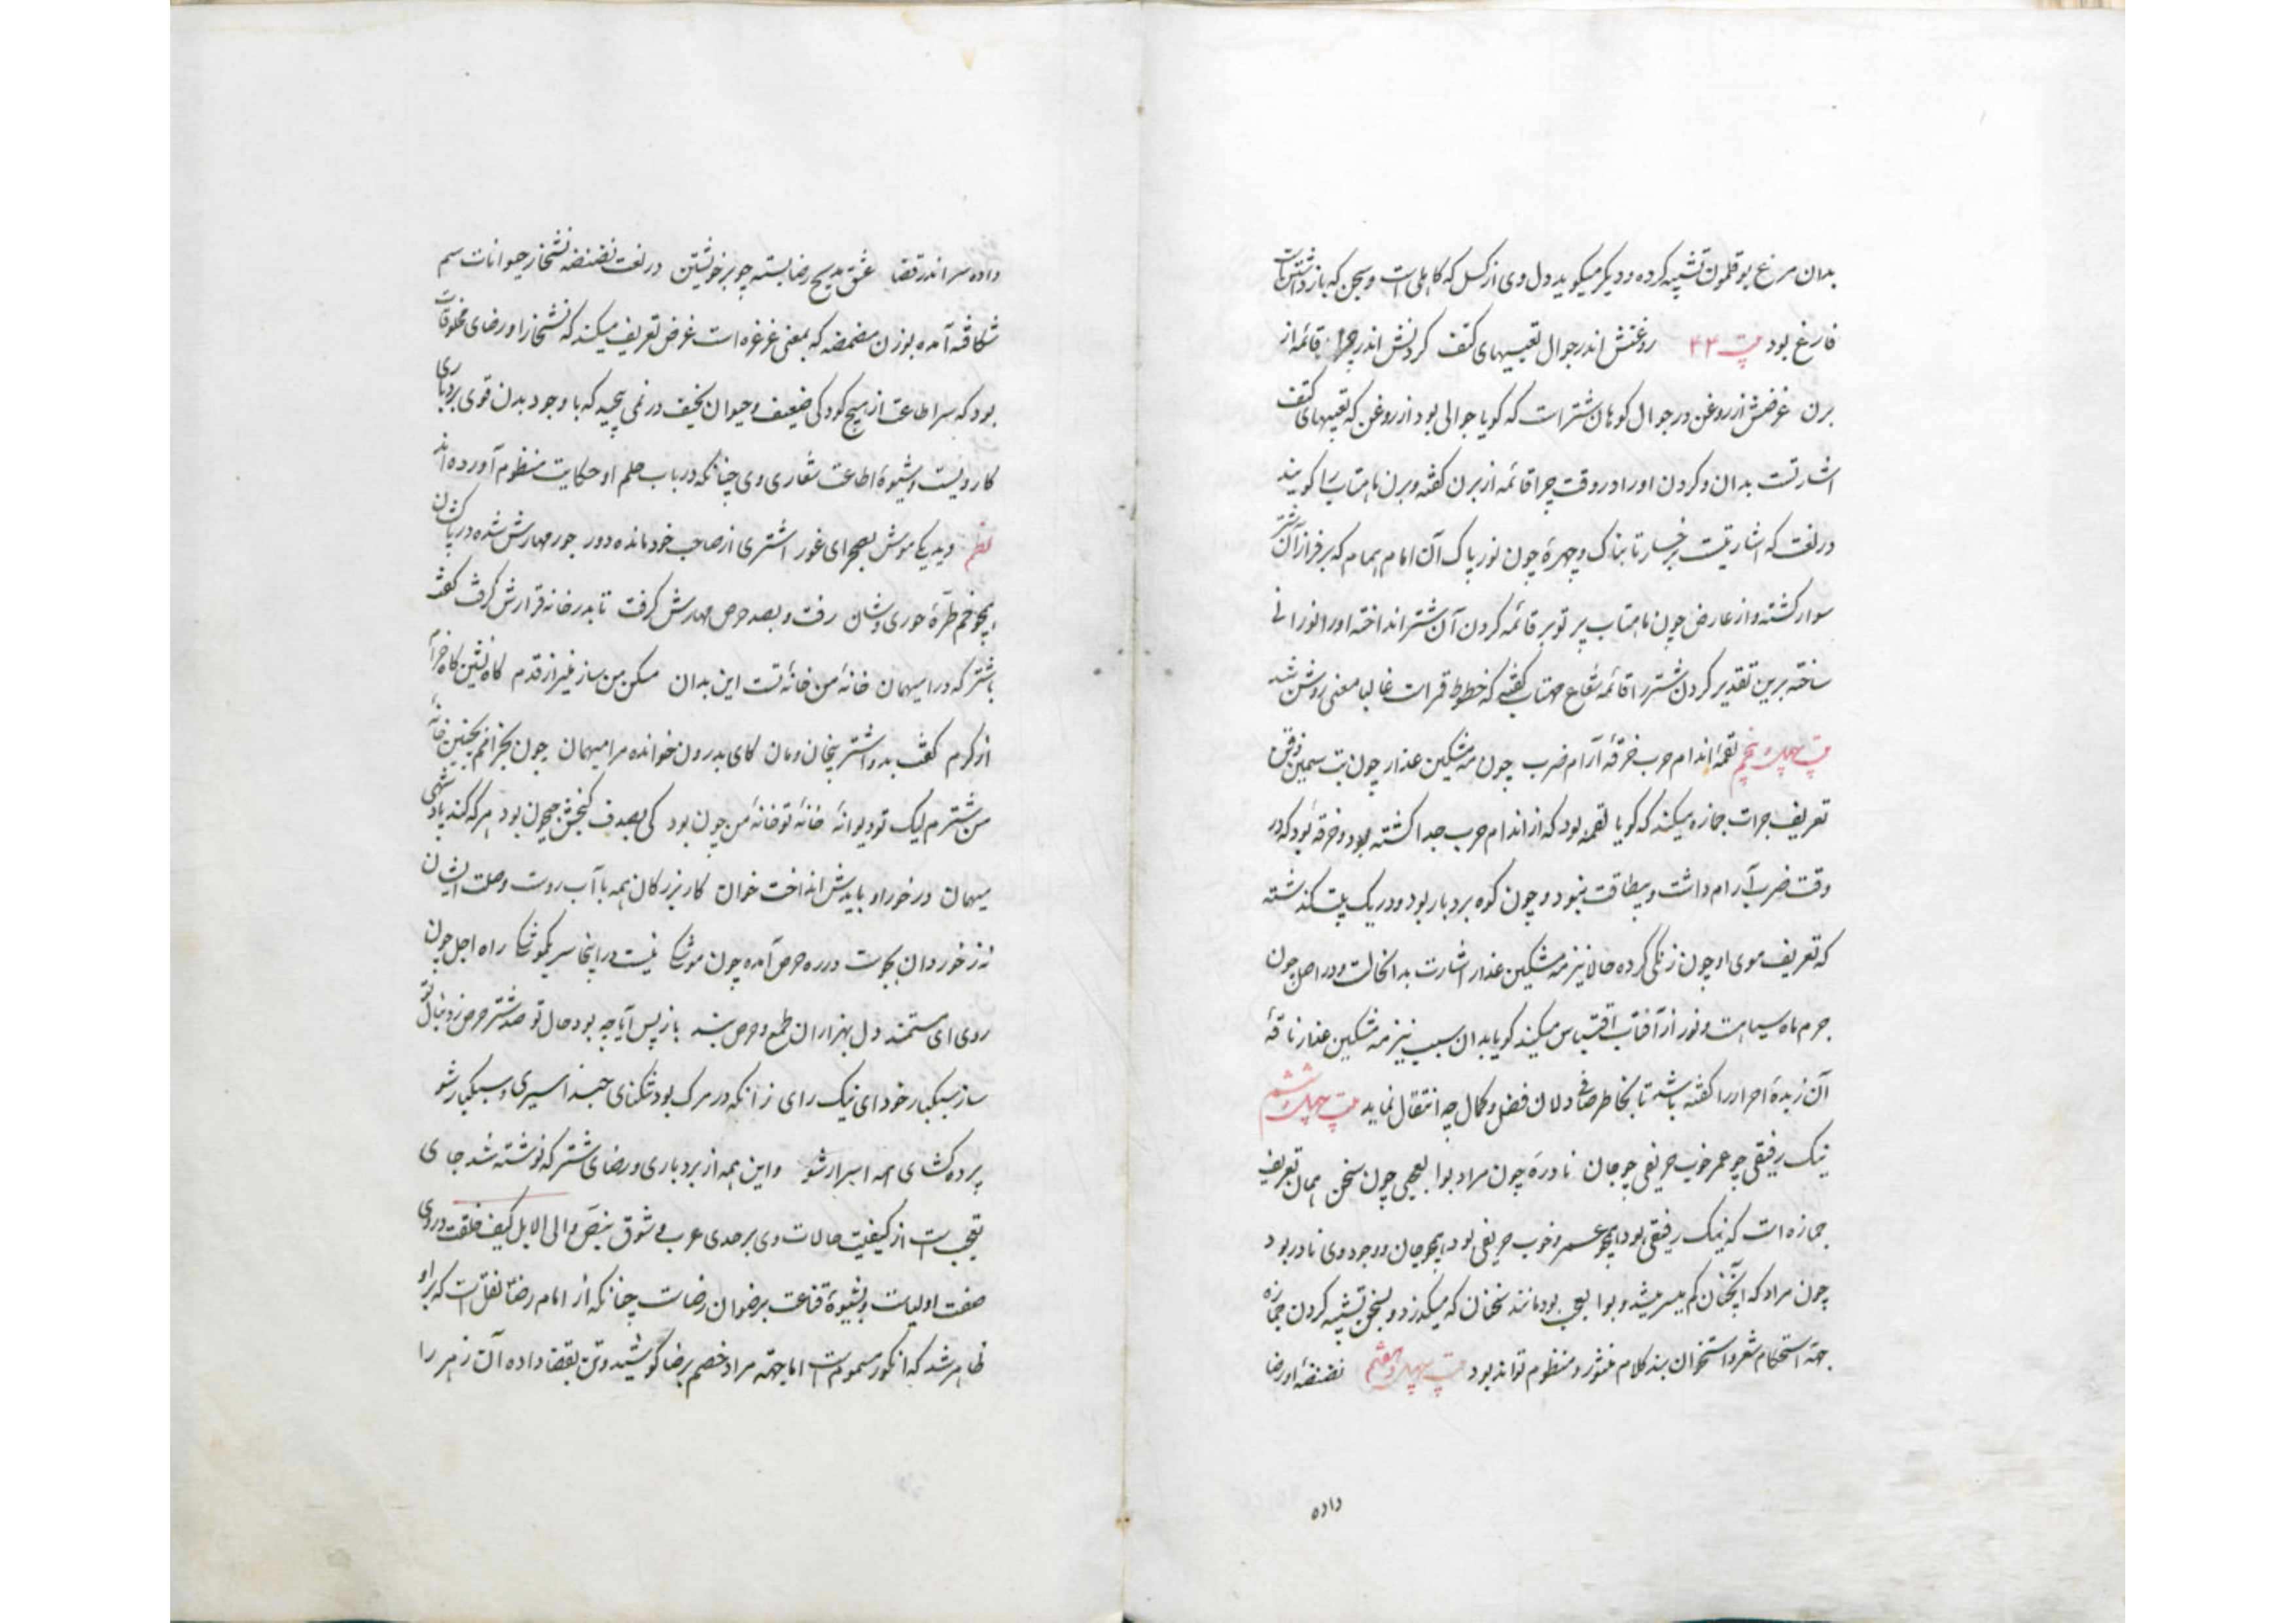 بدان مرغ بوقلمون تشبیه کرده و دیگر میگوید دل وی از کسل که کاهلی است و سجن که بازداشتن است
فارغ بود بیت ۴۴ روغنش اندر جوال تعبیهای کتف گردنش اندر چرا قائمه از
برن غرضش از روغن در جوال کوهان شتر است که گویا جوالی بود از روغن که تعبیهای کتف
اشارتست بدان و گردن او را در وقت چرا قائمه از برن گفته و برن ماهتاب را گویند
در لغت که اشارتیست برخسار تابناک و چهرهٔ چون نور پاک آن امام همام که بر فراز آن شتر
سوار گشته و از عارض چون ماهتاب پرتو بر قائمه گردن آن شتر انداخته او را نورانی
ساخته برین تقدیر گردن شتر را قائمه شعاع مهتاب گفتی که خطوط قمر است غالبا معنی روشن شد
بیت چهل و پنجم لقمهٔ اندام حرب خرقهٔ آرام ضرب چون مه مشکین عذار چون بت سیمین ذقن
تعریف جرات جمازه میکند که گویا لقمه بود که از اندام حرب جدا گشته بود و خرقه بود که در
وقت ضرب آرام داشت و بیطاقت نبود و چون کوه بردبار بود و در یک بیت گذشته
که تعریف موی او چون زنگی کرده حالا نیز مه مشکین عذار اشارت بدانحالت و در اصل چون
جرم ماه سیاهست و نور از آفتاب اقتباس میکند گویا بدان سبب نیز مه مشکین عذار ناقهٔ
آن زبدهٔ احرار را گفته باشد تا بخاطر صافی دلان فضل و کمال چه انتقال نماید بیت چهل و ششم
نیک رفیقی چو عمر خوب حریفی چو جان نادرهٔ چون مراد بوالعجبی چون سخن همان تعریف
جمازه است که نیک رفیقی بود همچو عمر و خوب حریفی بود همچو جان و وجود وی نادر بود
چون مراد که آنچنان کم میسر میشد و بوالعجب بود مانند سخنان که میگذرد و بسخن تشبیه کردن جمازه
جهة استحکام شعر و استخوان بند کلام منثور و منظوم تواند بود بیت چهل و هفتم نضنضهٔ او رضا
داده
داده سر اندر قضا عشق مدیح رضا بسته چو بر خویشتن در لغت نضنضه نشخار حیوانات سم
شکافته آمده بوزن مضمضه که بمعنی غرغره است غرض تعریف میکند که نشخار او رضای مخلوقات
بود که سر اطاعت از هیچ کودکی ضعیف و حیوان نحیف در نمی پیچید که با وجود بدن قوی بردباری
کار ویست و شیوهٔ اطاعت شعاری وی چنانکه در باب حلم او حکایت منظوم آورده اند
نظم دید یکی موش بصحرای غور اشتری از صاحب خود مانده دور جور مهارش شده در پا کشان
همچو خم طرهٔ حوری وشان رفت و بصد حرص مهارش گرفت تا بدر خانه قرارش گرفت گفت
باشتر که درا میهمان خانهٔ من خانهٔ تست این بدان مسکن من ساز عزیز از قدم گاه نشین گاه خرام
از کرم گفت بدو اشتر بیخان و مان کای بدرون خوانده مرا میهمان چون بخرامم بچنین خانهٔ
من شترم لیک تو دیوانهٔ خانهٔ تو خانهٔ من چون بود کی بصدف گنجش جیحون بود هر که کند یاد شهی
میهمان در خور او بایدش انداخت خوان کار بزرگان همه با آب روست وصلت ایشان
نه ز خوردان نکوست در ره حرص آمده چون موشکا نیست در اینجا سر یکموشکا راه اجل چون
روی ای مستمند دل بهزاران طمع و حرص بند باز پس آیا چه بود حال تو صد شتر حرص ز دنبال تو
ساز سبکبار خود ای نیک رای زانکه در مرگ بود تنگنای چند اسیری و سبکبار شو
پرده گشای همه اسرار شو و این همه از بردباری و رضای شتر که نوشته شد جای
تعجب است از کیفیت حالات وی بر حدی عرب و شوق بنص و الی الابل کیف خلقت در وی
صفت اولیاست و شیوهٔ قناعت برضوان رضاست چنانکه از امام رضا نقل است که بر او
ظاهر شد که انگور مسموم است اما جهة مراد خصم برضا کوشید و تن بقضا داده آن زهر را